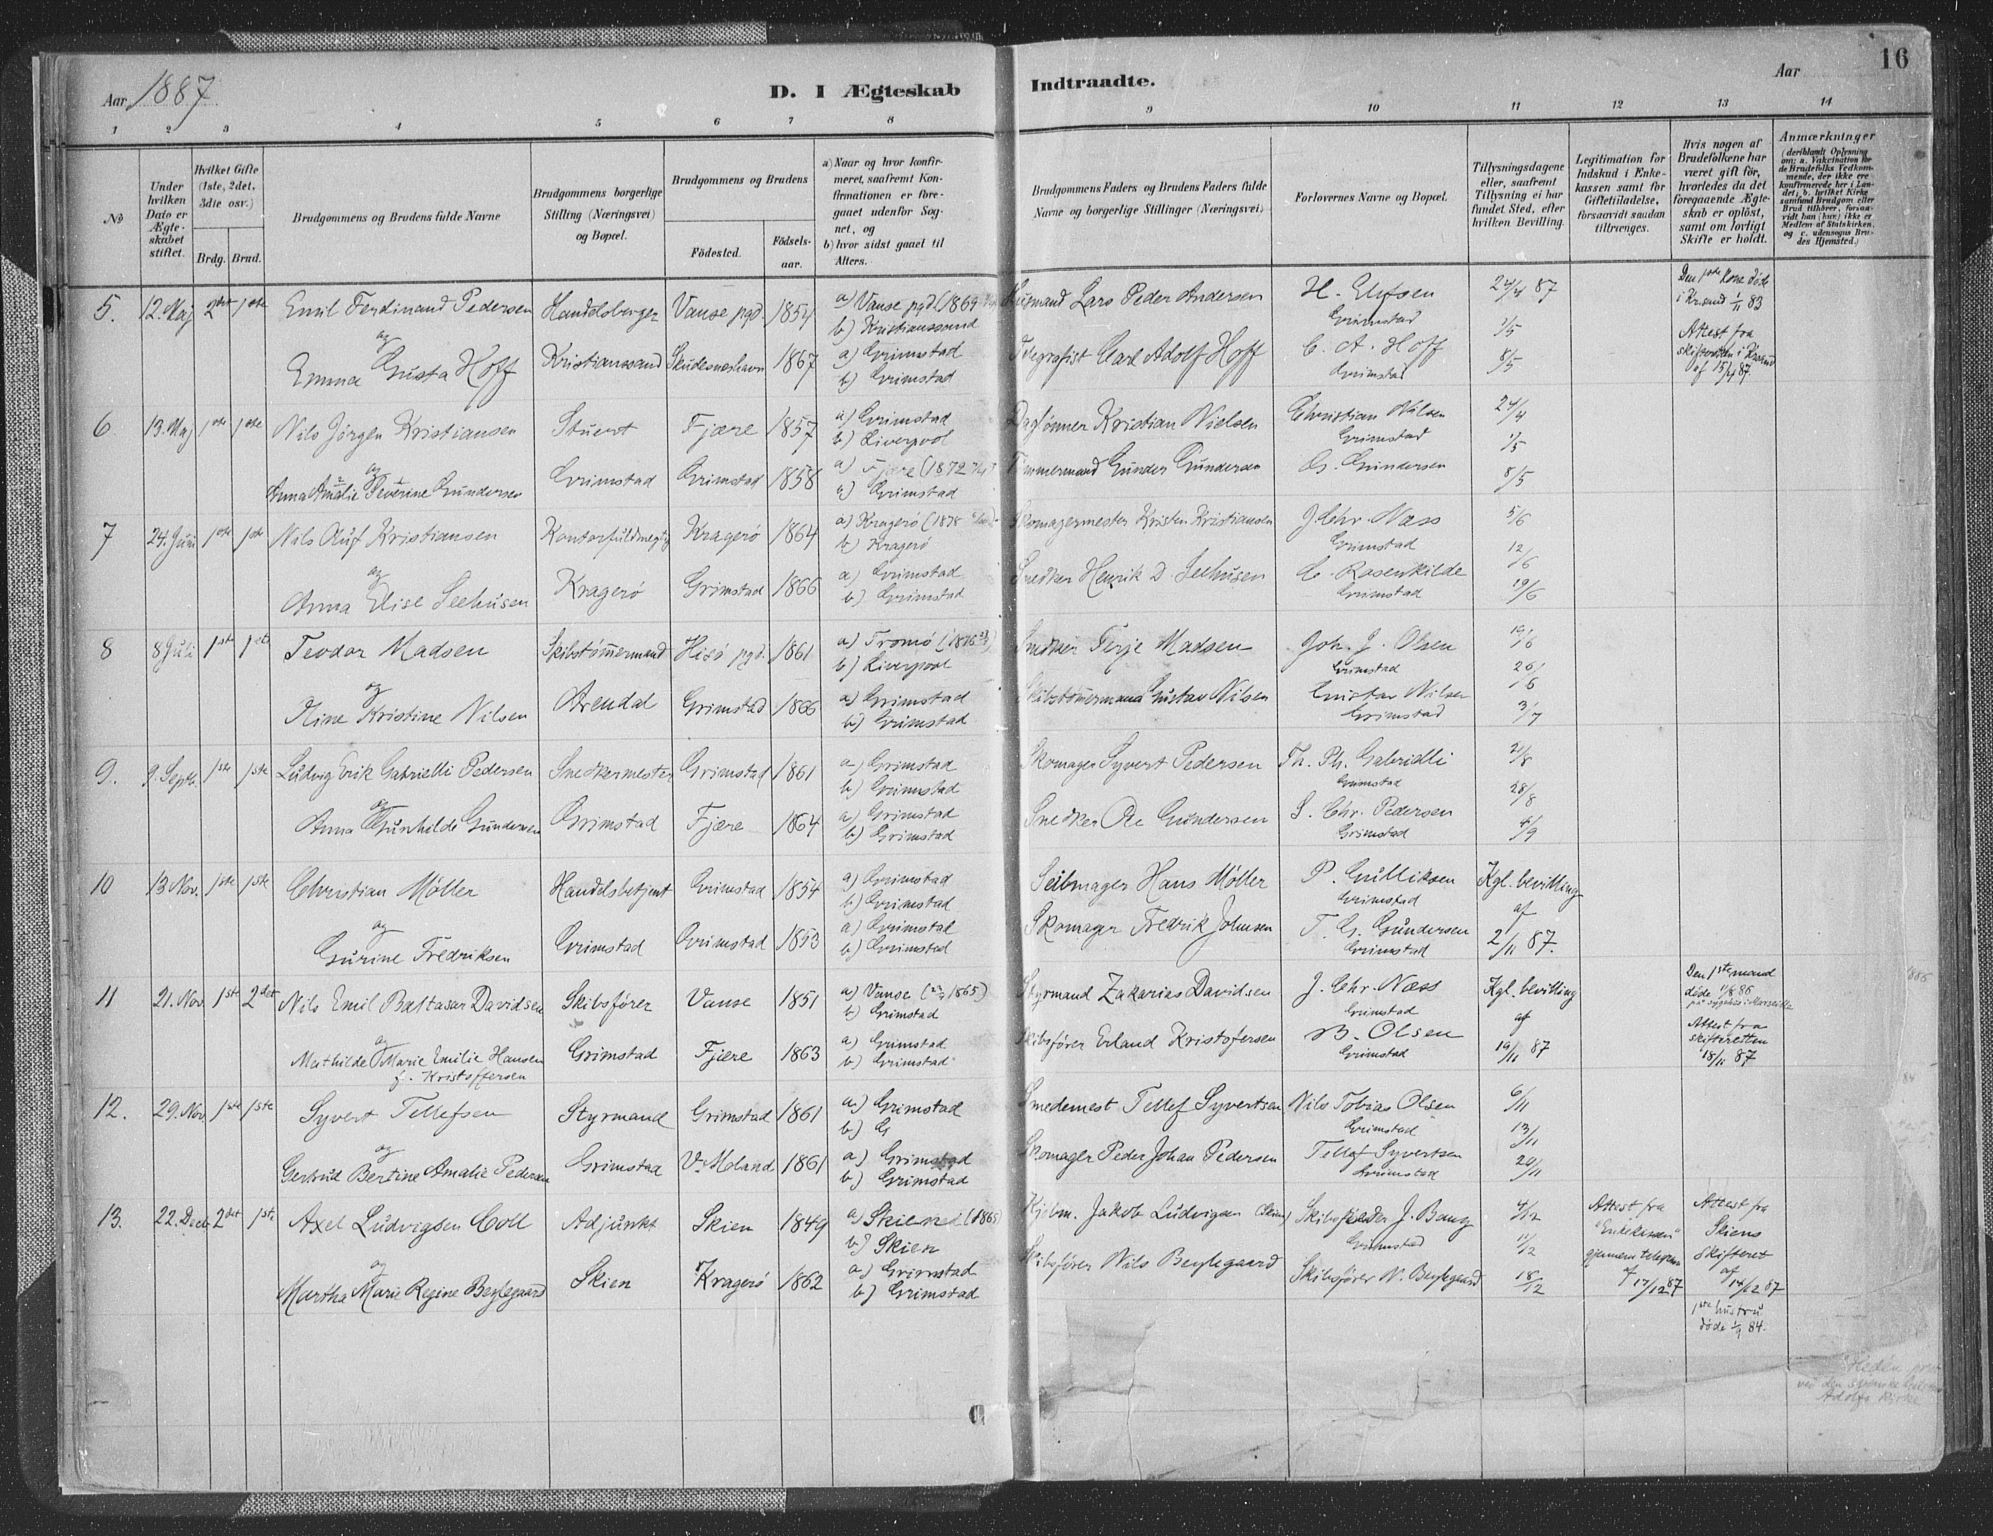 Aar 1887
D. I Ægteskab Indtraadte.
Aar
16
1 2 3 4 5 6 7 8 9 10 11 12 13 14
№
Under hvilken Dato er Ægteskabet stiftet.
Hvilket Gifte (1ste, 2det, 3die osv.)
Brdg. Brud.
Brudgommens og Brudens fulde Navne
Brudgommens borgerlige Stilling (Næringsvei) og Bopæl.
Brudgommens og Brudens
Födested.
Födselsaar.
a) Naar og hvor konfirmeret, saafremt Konfirmationen er foregaaet udenfor Sognet, og
b) hvor sidst gaaet til Alters.
Brudgommens Faders og Brudens Faders fulde Navne og borgerlige Stillinger (Næringsvei)
Forlovernes Navne og Bopæl.
Tillysningsdagene eller, saafremt Tillysning ei har fundet Sted, efter hvilken Bevilling.
Legitimation for Indskud i Enkekassen samt for Giftetilladelse, forsaavidt saadan tiltrænges.
Hvis nogen af Brudefolkene har været gift för, hvorledes da det foregaaende Ægteskab er oplöst, samt om lovligt Skifte er holdt.
Anmærkninger (deriblandt Oplysning om: a. Vakcination for de Brudefolks Vedkommende, der ikke ere konfirmerede her i Landet; b. hvilket Kirkesamfund Brudgom eller Brud tilhörer, forsaavidt han (hun) ikke er Medlem af Statskirken, og c. udensogns Brudes Hjemsted.)
5. 12. Maj 2det 1ste Emil Ferdinand Pedersen Handelsborger Vanse pgd. 1854 a) Vanse pgd. (1869 Lars Peder Andersen H. Elefsen 24/4 87 Den 1ste Kone døde
b) Kristianssand Grimstad i Kr.sand 1/11 83
og 1/5 Attest fra
Emma Gusta Hoff Kristianssand Skudesneshavn 1867 a) Grimstad Telegrafist Carl Adolf Hoff C. A. Hoff 8/5 skifteretten i Krsand
b) Grimstad Grimstad af 15/4 87
6. 13. Maj 1ste 1ste Nils Jörgen Kristiansen Stuert Fjære 1857 a) Grimstad Daglönner Kristian Nielsen Christian Nilsen 24/4
b) Liverpool Grimstad 1/5
og
Anna Amalie Severine Gundersen Grimstad Grimstad 1858 a) Fjære (1872 Tömmermand Gunder Gundersen G. Gundersen 8/5
b) Grimstad
7 24. Juni 1ste 1ste Nils Oluf Kristiansen Kontorfuldmegtig Kragerö 1864 a) Kragerö (1878 Skomagermester Kristen Kristiansen J Chr. Næss 5/6
b) Kragerö Grimstad 12/6
og
Anna Elise Seehusen Kragerö Grimstad 1866 a) Grimstad Snedker Henrik D. Seehusen C. Rosenkilde 19/6
b) Grimstad Grimstad
8 8 Juli 1ste 1ste Teodor Madsen Skibstømmermand Hisö pgd. 1861 a) Tromö (1876 Snedker Terje Madsen Joh. J. Olsen 19/6
b) Liverpool Grimstad 26/6
og
Oline Kristine Nilsen Arendal Grimstad 1866 a) Grimstad Skibstømmermand Gustav Nilsen Gustav Nilsen 3/7
b) Grimstad Grimstad
9. 9. Septb. 1ste 1ste Ludvig Erik Gabrielli Pedersen Snedkermester Grimstad 1861 a) Grimstad Skomager Syvert Pedersen Th. Ph. Gabrielli 21/8
b) Grimstad Grimstad 28/8
og
Anna Gunhilde Gundersen Grimstad Fjære 1864 a) Grimstad Snedker Ole Gundersen S. Chr. Pedersen 4/9
b) Grimstad Grimstad
10 13 Nov. 1ste 1ste Christian Møller Handelsbetjent Grimstad 1854 a) Grimstad Seilmager Hans Møller P. Gulliksen Kgl. bevilling
b) Grimstad Grimstad af
og
Gurine Fredriksen Grimstad Grimstad 1853 a) Grimstad Skomager Fredrik Johnsen T. G. Gundersen 2/11 87.
b) Grimstad Grimstad
11 21. Nov 1ste 2det Nils Emil Baltasar Davidsen Skibsförer Vanse 1851 a) Vanse (1865) Styrmand Zakarias Davidsen J. Chr. Næss Kgl. bevilling Den 1ste mand
b) Grimstad Grimstad af døde 1/8 86
på sygehus i Marseille
og
Mathilde Marie Emilie Hansen Grimstad Fjære 1863 a) Grimstad Skibsförer Erland Kristofersen B. Olsen 19/11 87 Attest fra
f. Kristoffersen b) Grimstad Grimstad skifteretten
18/11 87
12. 29. Nov 1ste 1ste Syvert Tellefsen Styrmand Grimstad 1861 a) Grimstad Smedemest Tellef Syvertsen Nils Tobias Olsen 6/11
b) G Grimstad 13/11
og
Gertrud Bertine Amalie Pedersen Grimstad V. Moland 1861 a) Grimstad Skomager Peder Johan Pedersen Tellef Syvertsen 20/11
b) Grimstad Grimstad
13. 22. Decb. 2det 1ste Axel Ludvigsen Coll Adjunkt Skien 1849 a) Skien (1865 Kjøbm. Jakob Ludvigsen Skibsreder J. Bang 4/12 Attest fra Attest fra
b) Skien Grimstad 11/12 "Enkekassen" Skiens
og gjennem telegram skifteret
Martha Marie Regine Beylegaard Skien Kragerö 1862 a) Grimstad Skibsförer Nils Beylegaard Skibsförer N. Beylegaard 18/12 af 17/12 87 af 14/12 87
b) Grimstad 1ste hustru
døde 1/9 84.
Adolfs Kirke